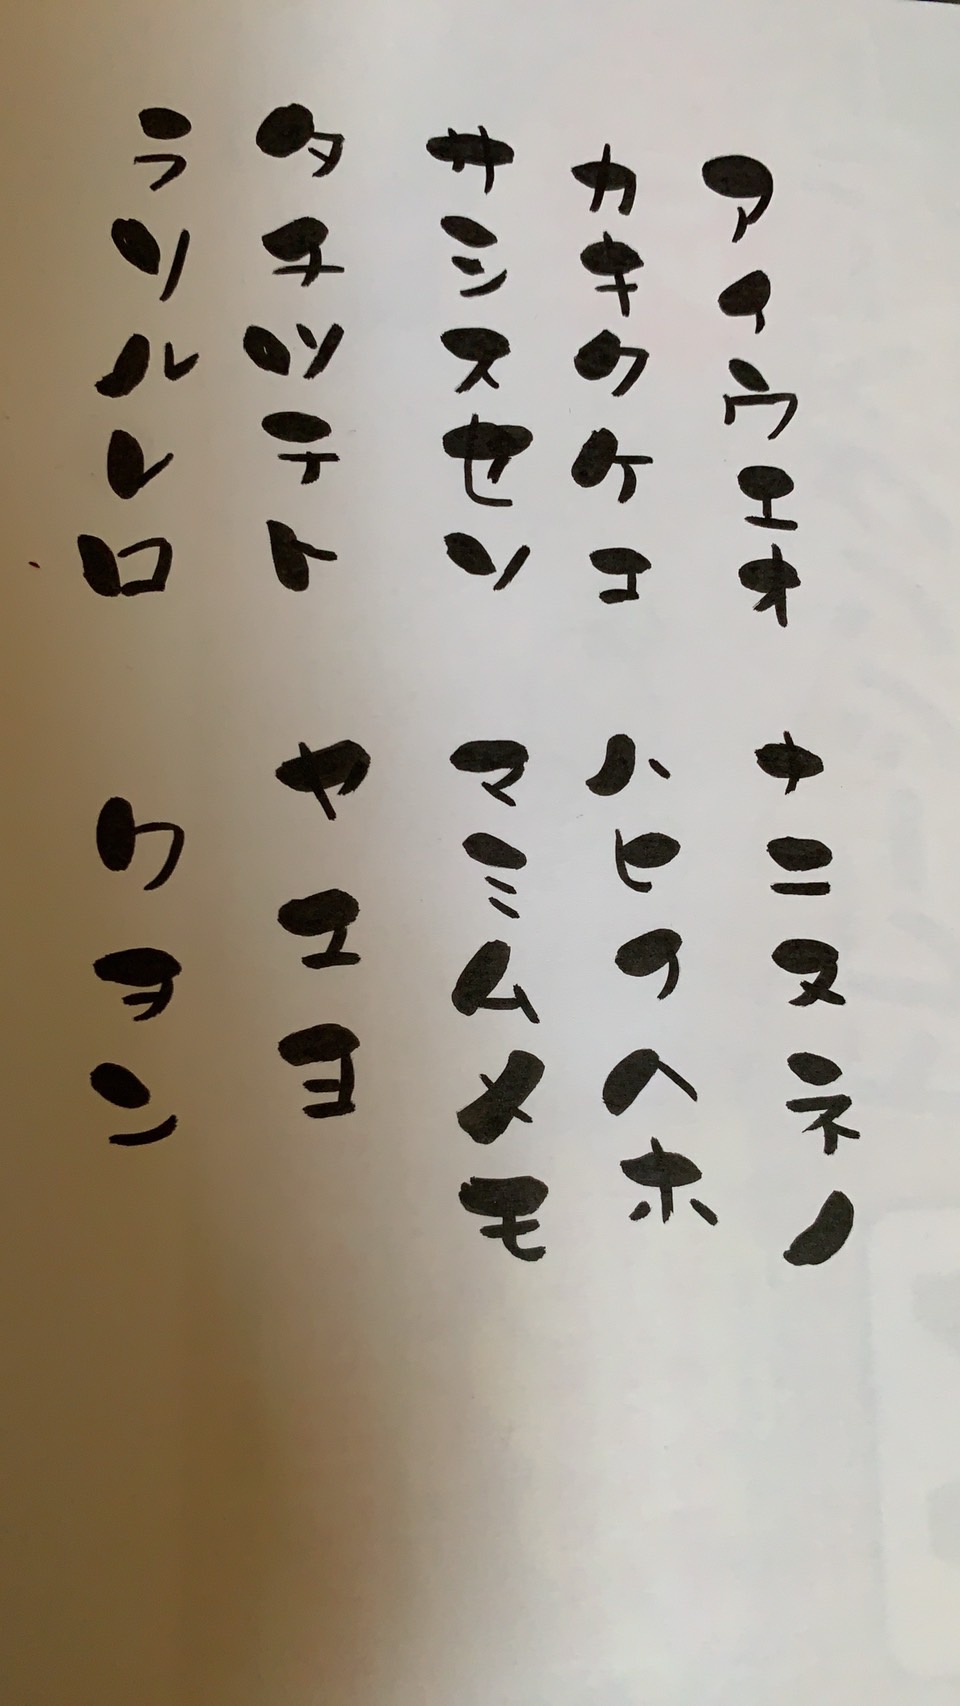 アイウエオ
カキクケコ
サシスセソ
タチツテト
ラリルレロ
ナニヌネノ
ハヒフヘホ
マミムメモ
ヤユヨ
ワヲン